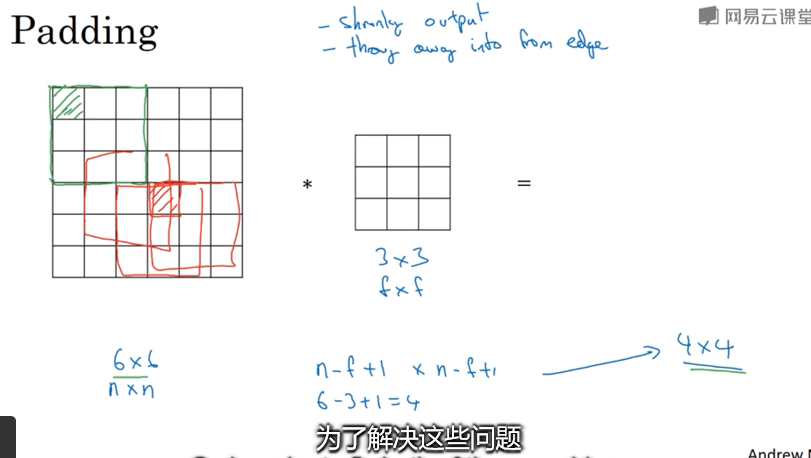 Padding
- shrinky output
- throw away info from edge
网易云课堂
*
=
3×3
f×f
6×6
n×n
n-f+1 × n-f+1
6-3+1=4
4×4
为了解决这些问题
Andrew